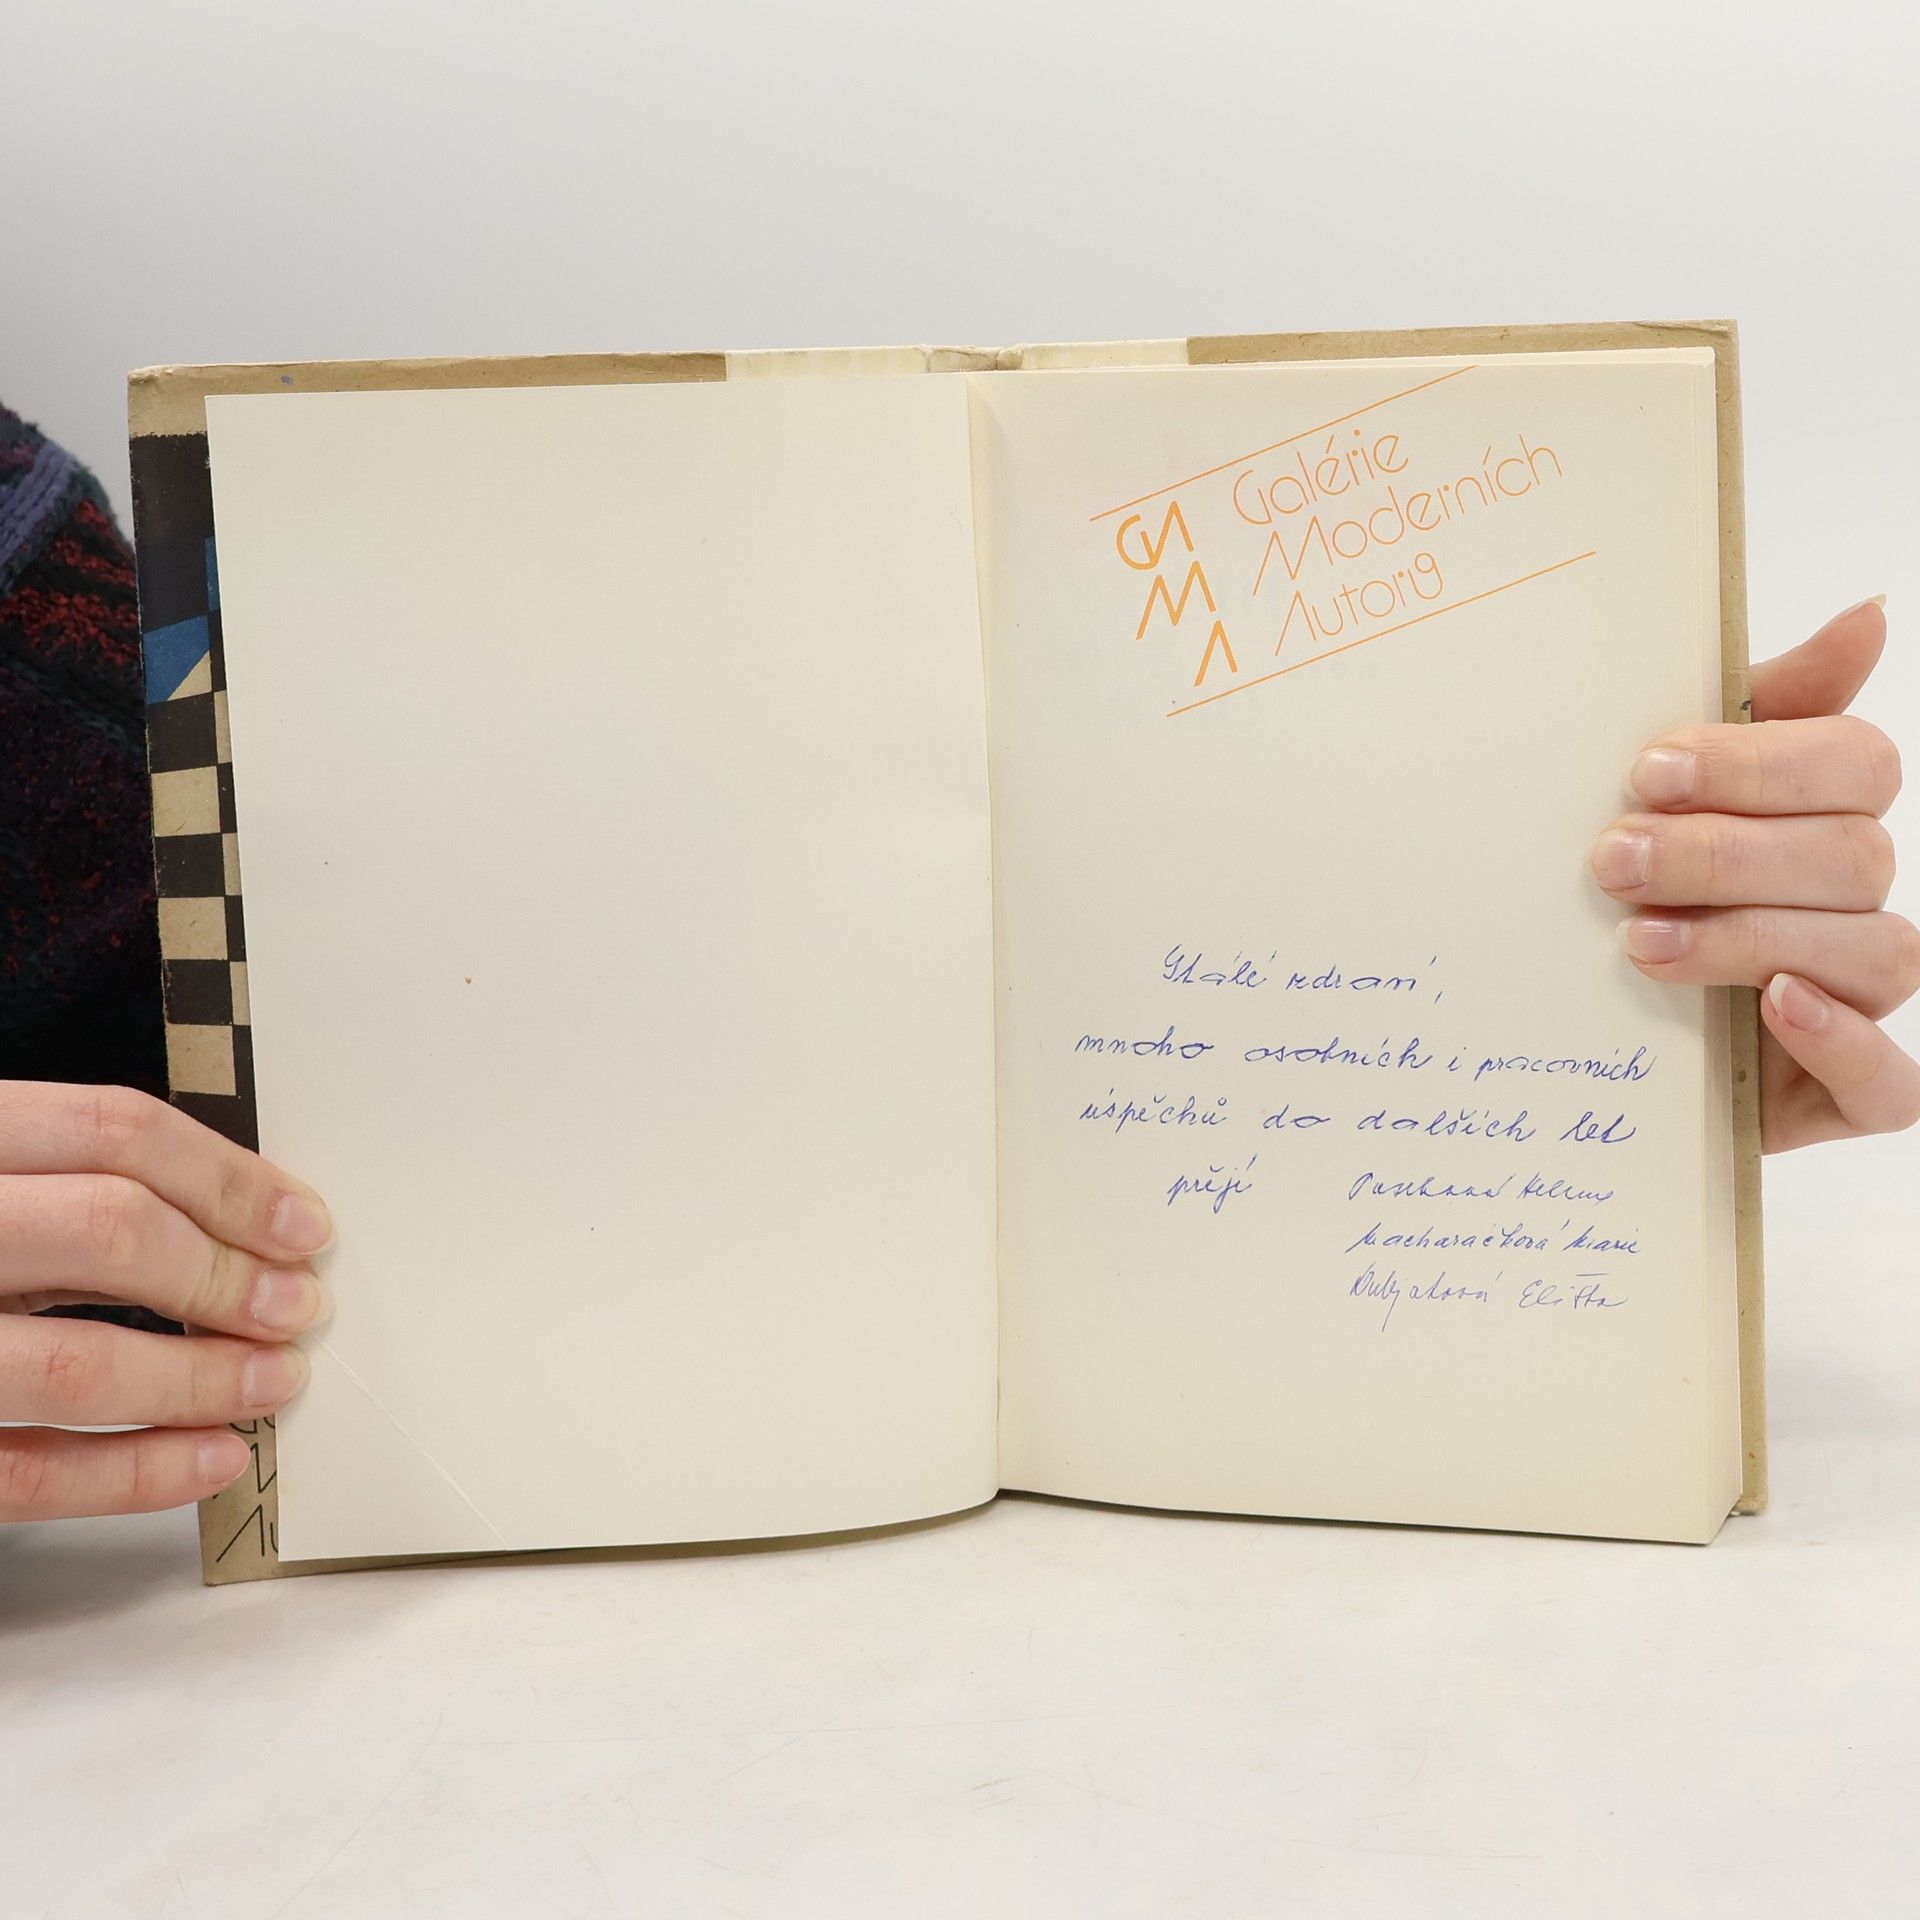 GA Galérie
M Moderních
A Autorů
Stálé zdraví,
mnoho osobních i pracovních
úspěchů do dalších let
přejí Helena
Macharáčková Marie
Eliška
Au